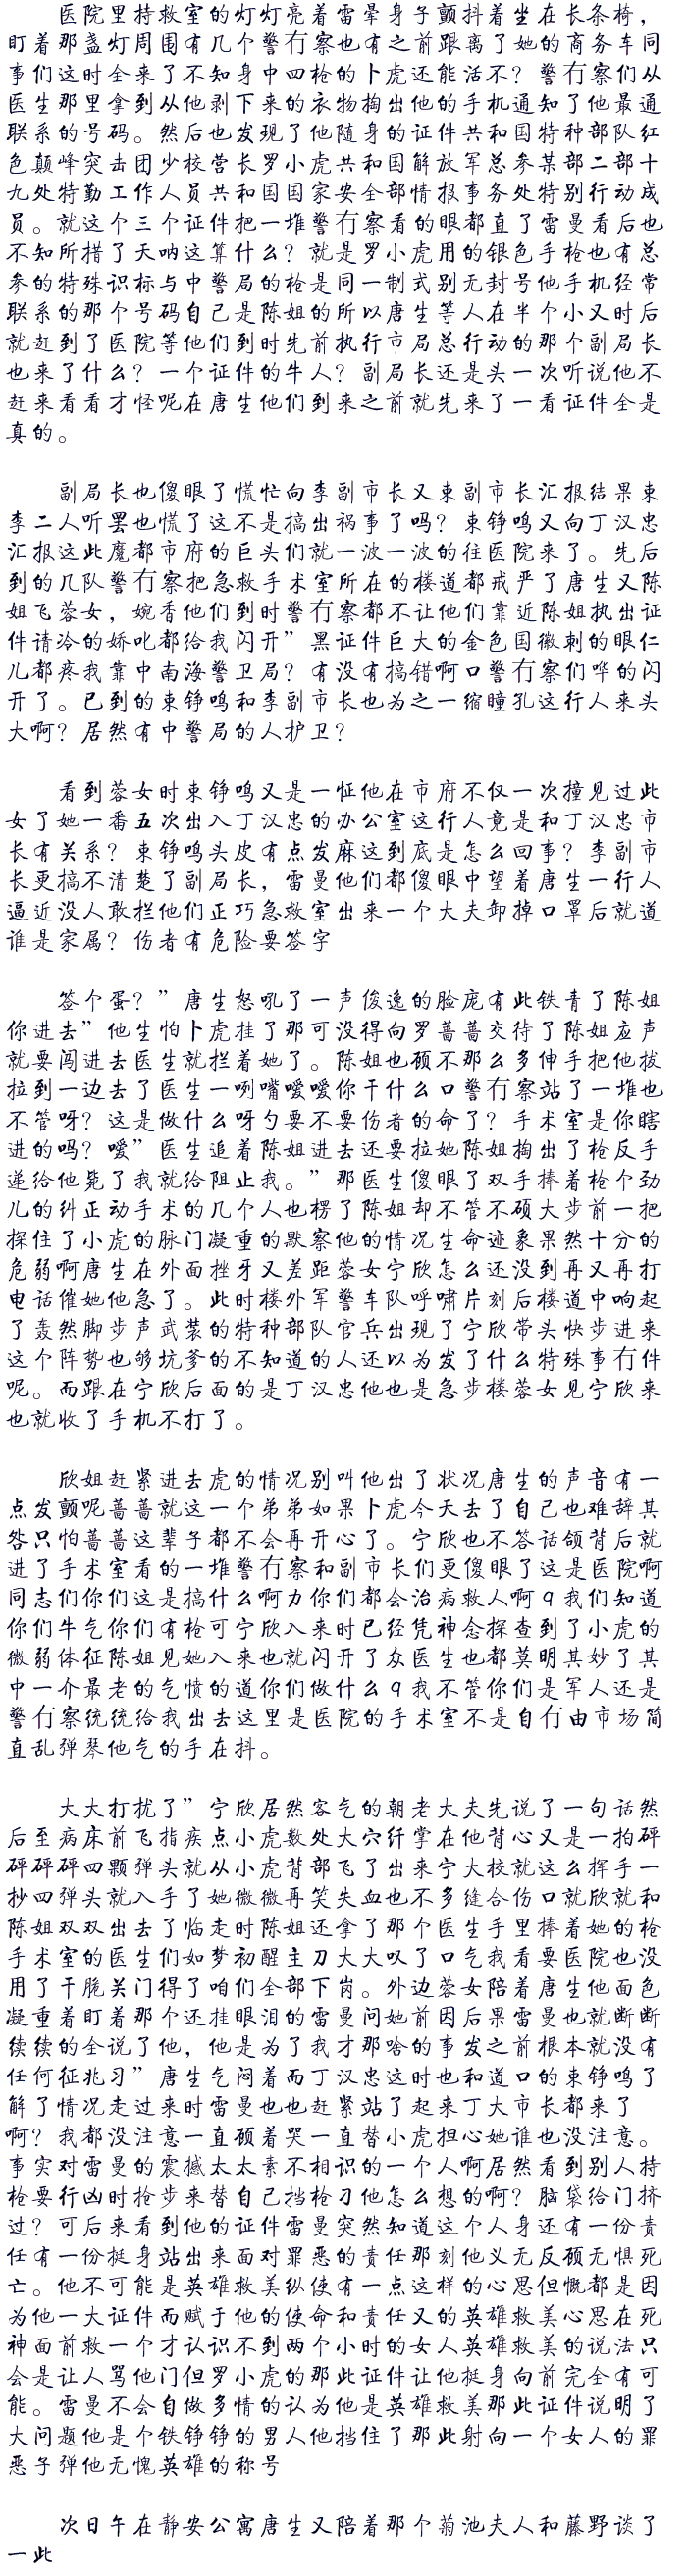 医院里持救室的灯灯亮着雷晕身子颤抖着坐在长条椅，
盯着那盏灯周围有几个警冇察也有之前跟离了她的商务车同
事们这时全来了不知身中四枪的卜虎还能活不？警冇察们从
医生那里拿到从他剥下来的衣物掏出他的手机通知了他最通
联系的号码。然后也发现了他随身的证件共和国特种部队红
色颠峰突击团少校营长罗小虎共和国解放军总参某部二部十
九处特勤工作人员共和国国家安全部情报事务处特别行动成
员。就这个三个证件把一堆警冇察看的眼都直了雷曼看后也
不知所措了天呐这算什么？就是罗小虎用的银色手枪也有总
参的特殊识标与中警局的枪是同一制式别无封号他手机经常
联系的那个号码自己是陈姐的所以唐生等人在半个小又时后
就赶到了医院等他们到时先前执行市局总行动的那个副局长
也来了什么？一个证件的牛人？副局长还是头一次听说他不
赶来看看才怪呢在唐生他们到来之前就先来了一看证件全是
真的。
副局长也傻眼了慌忙向李副市长又束副市长汇报结果束
李二人听罢也慌了这不是搞出祸事了吗？束铮鸣又向丁汉忠
汇报这此魔都市府的巨头们就一波一波的往医院来了。先后
到的几队警冇察把急救手术室所在的楼道都戒严了唐生又陈
姐飞蓉女，婉香他们到时警冇察都不让他们靠近陈姐执出证
件请冷的娇叱都给我闪开”黑证件巨大的金色国徽刺的眼仁
儿都疼我靠中南海警卫局？有没有搞错啊口警冇察们哗的闪
开了。已到的束铮鸣和李副市长也为之一缩瞳孔这行人来头
大啊？居然有中警局的人护卫？
看到蓉女时束铮鸣又是一怔他在市府不仅一次撞见过此
女了她一番五次出入丁汉忠的办公室这行人竟是和丁汉忠市
长有关系？束铮鸣头皮有点发麻这到底是怎么回事？李副市
长更搞不清楚了副局长，雷曼他们都傻眼中望着唐生一行人
逼近没人敢拦他们正巧急救室出来一个大夫卸掉口罩后就道
谁是家属？伤者有危险要签字
签个蛋？”唐生怒吼了一声俊逸的脸庞有此铁青了陈姐
你进去”他生怕卜虎挂了那可没得向罗蔷蔷交待了陈姐应声
就要闯进去医生就拦着她了。陈姐也顾不那么多伸手把他拔
拉到一边去了医生一咧嘴嗳嗳你干什么口警冇察站了一堆也
不管呀？这是做什么呀勺要不要伤者的命了？手术室是你瞎
进的吗？嗳”医生追着陈姐进去还要拉她陈姐掏出了枪反手
递给他毙了我就给阻止我。”那医生傻眼了双手捧着枪个劲
儿的纠正动手术的几个人也楞了陈姐却不管不硕大步前一把
探住了小虎的脉门凝重的默察他的情况生命迹象果然十分的
危弱啊唐生在外面挫牙又差距蓉女宁欣怎么还没到再又再打
电话催她他急了。此时楼外军警车队呼啸片刻后楼道中响起
了轰然脚步声武装的特种部队官兵出现了宁欣带头快步进来
这个阵势也够坑爹的不知道的人还以为发了什么特殊事冇件
呢。而跟在宁欣后面的是丁汉忠他也是急步楼蓉女见宁欣来
也就收了手机不打了。
欣姐赶紧进去虎的情况别叫他出了状况唐生的声音有一
点发颤呢蔷蔷就这一个弟弟如果卜虎今天去了自己也难辞其
咎只怕蔷蔷这辈子都不会再开心了。宁欣也不答话颌背后就
进了手术室看的一堆警冇察和副市长们更傻眼了这是医院啊
同志们你们这是搞什么啊力你们都会治病救人啊q我们知道
你们牛气你们有枪可宁欣入来时已经凭神念探查到了小虎的
微弱体征陈姐见她入来也就闪开了众医生也都莫明其妙了其
中一介最老的气愤的道你们做什么q我不管你们是军人还是
警冇察统统给我出去这里是医院的手术室不是自冇由市场简
直乱弹琴他气的手在抖。
大大打扰了”宁欣居然客气的朝老大夫先说了一句话然
后至病床前飞指疾点小虎数处大穴纤掌在他背心又是一拍砰
砰砰砰四颗弹头就从小虎背部飞了出来宁大校就这么挥手一
抄四弹头就入手了她微微再笑失血也不多缝合伤口就欣就和
陈姐双双出去了临走时陈姐还拿了那个医生手里捧着她的枪
手术室的医生们如梦初醒主刀大大叹了口气我看要医院也没
用了干脆关门得了咱们全部下岗。外边蓉女陪着唐生他面色
凝重着盯着那个还挂眼泪的雷曼问她前因后果雷曼也就断断
续续的全说了他，他是为了我才那啥的事发之前根本就没有
任何征兆习”唐生气闷着而丁汉忠这时也和道口的束铮鸣了
解了情况走过来时雷曼也也赶紧站了起来丁大市长都来了
啊？我都没注意一直顾着哭一直替小虎担心她谁也没注意。
事实对雷曼的震撼太太素不相识的一个人啊居然看到别人持
枪要行凶时抢步来替自己挡枪刃他怎么想的啊？脑袋给门挤
过？可后来看到他的证件雷曼突然知道这个人身还有一份责
任有一份挺身站出来面对罪恶的责任那刻他义无反顾无惧死
亡。他不可能是英雄救美纵使有一点这样的心思但慨都是因
为他一大证件而赋于他的使命和责任又的英雄救美心思在死
神面前救一个才认识不到两个小时的女人英雄救美的说法只
会是让人骂他门但罗小虎的那此证件让他挺身向前完全有可
能。雷曼不会自做多情的认为他是英雄救美那此证件说明了
大问题他是个铁铮铮的男人他挡住了那此射向一个女人的罪
恶子弹他无愧英雄的称号
次日午在静安公寓唐生又陪着那个菊池夫人和藤野谈了
一此